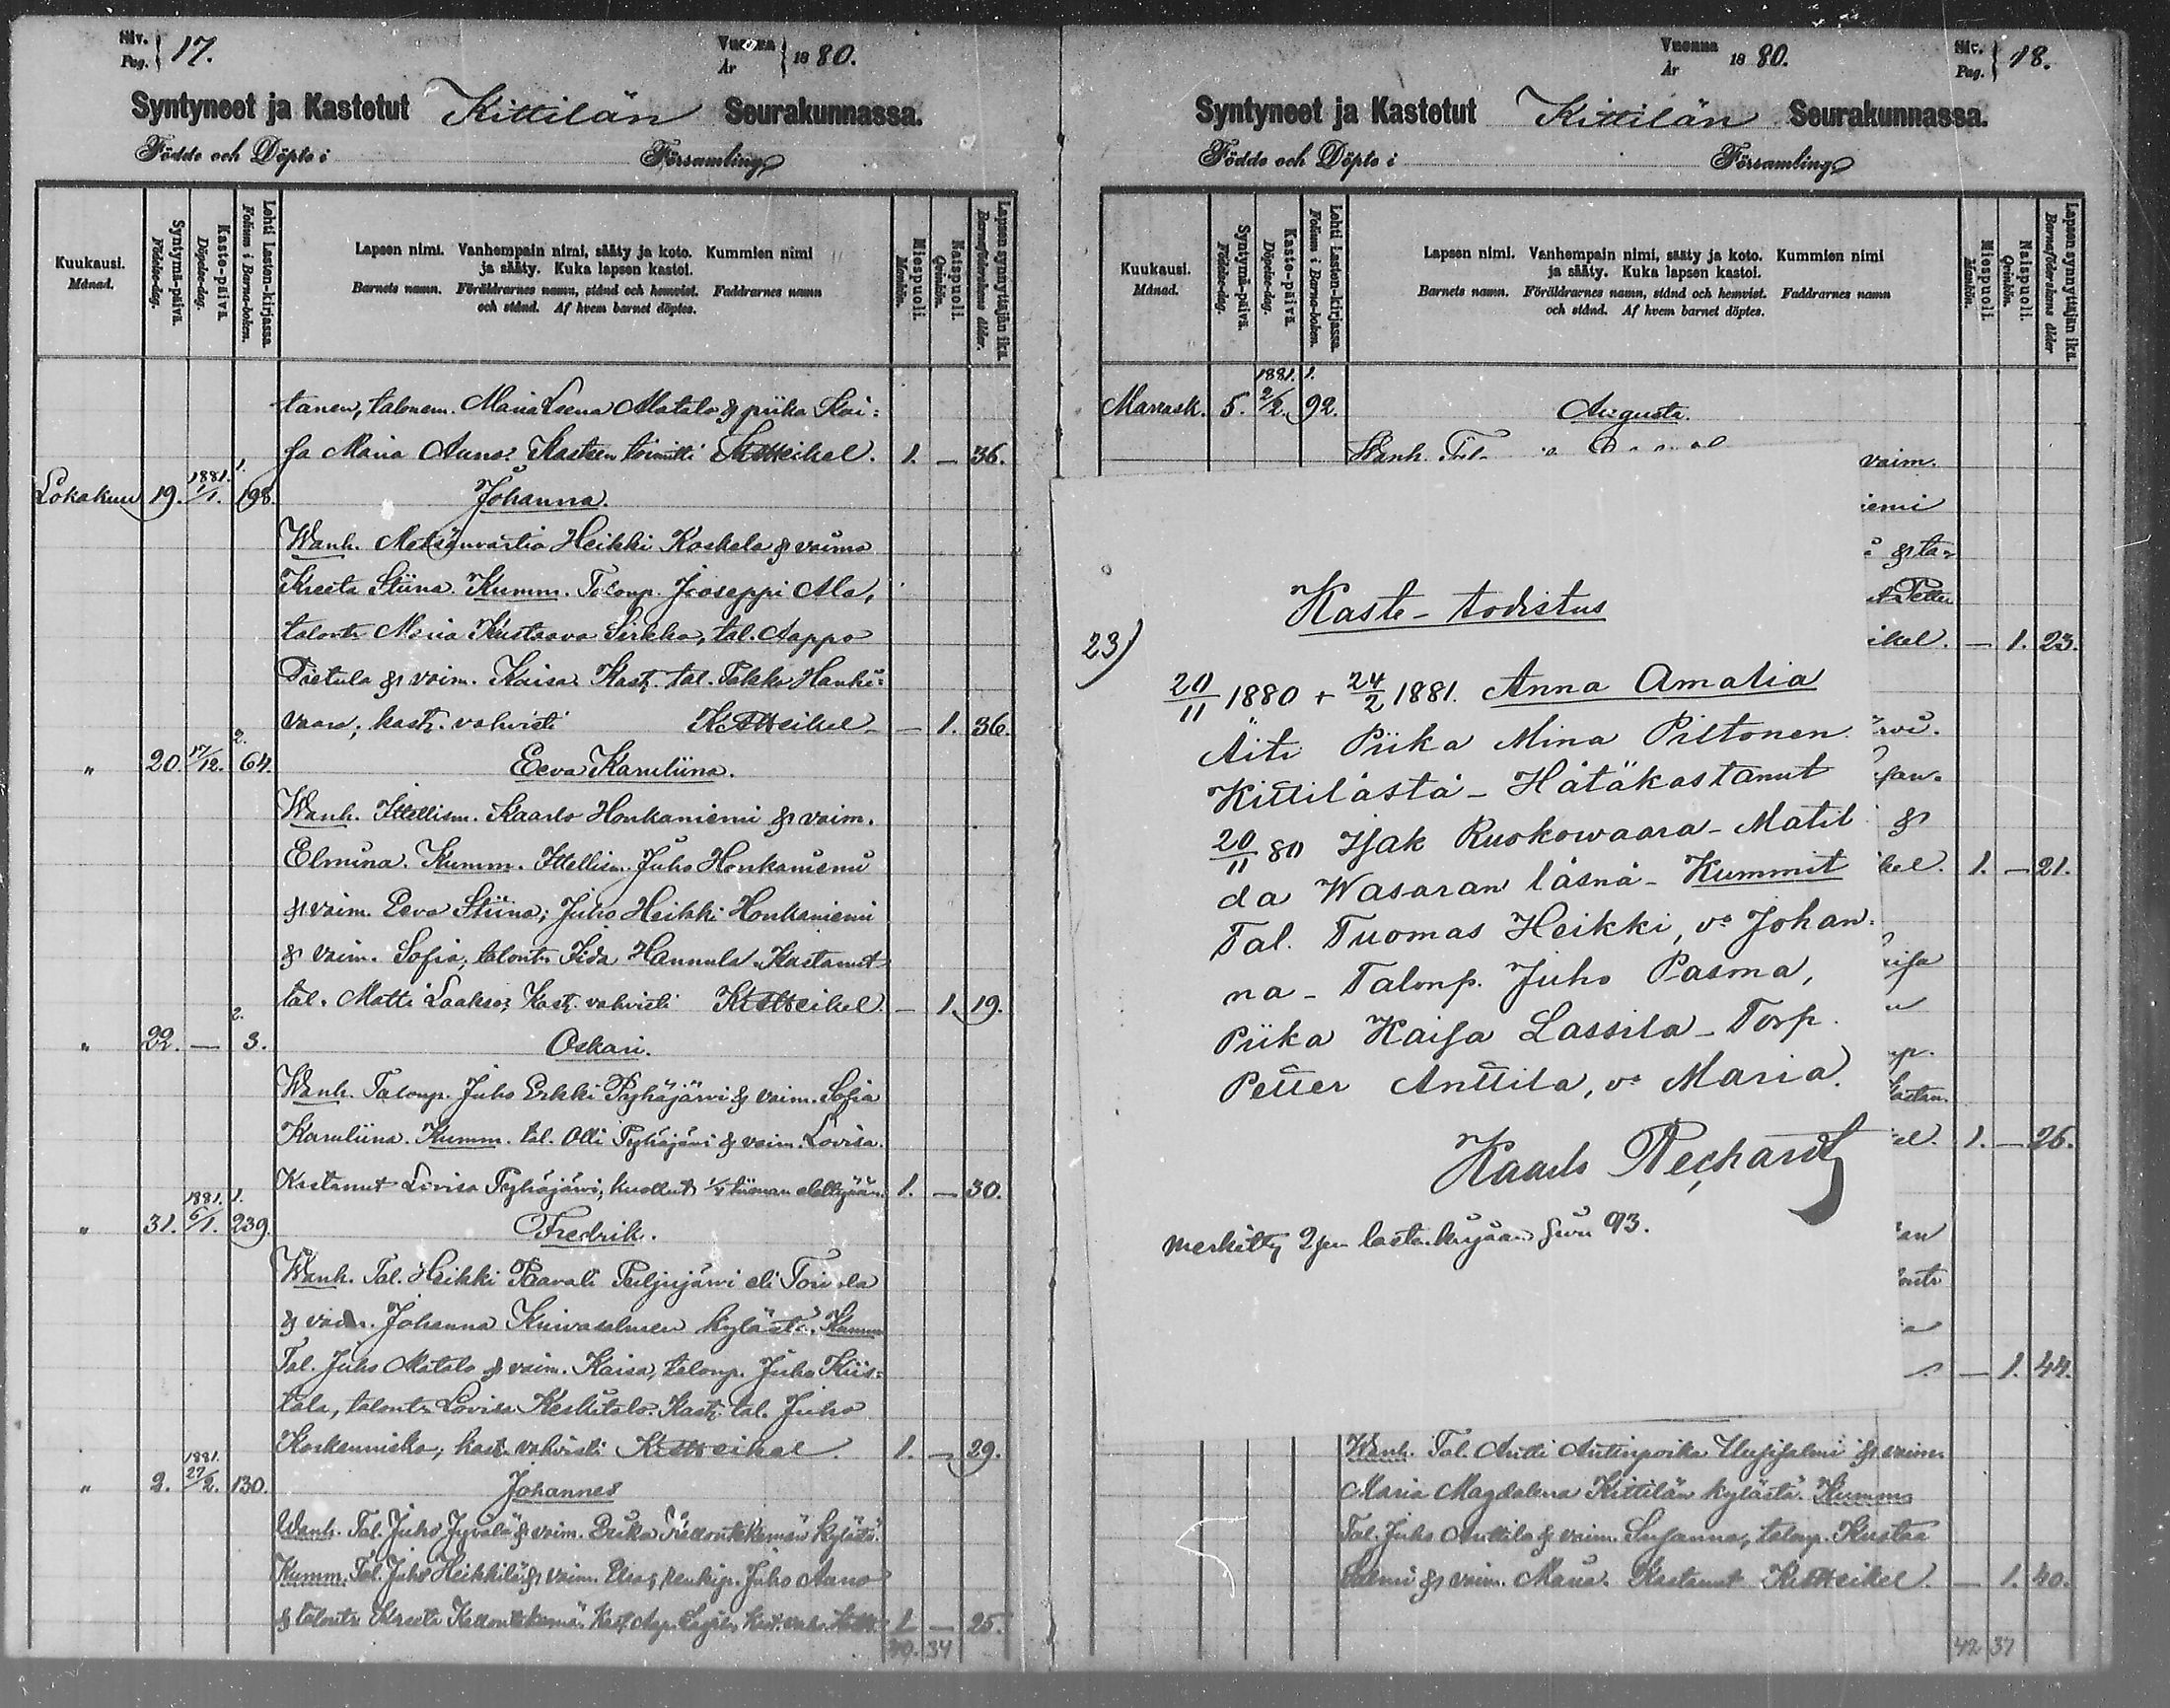 Siv.
Pag. 17.
Vuonna
År 1880.
Syntyneet ja Kastetut Kittilän Seurakunnassa.
Födde och Döpte i Församling
Kuukausi.
Månad.
Syntymä-päivä.
Födelse-dag.
Kaste-päivä.
Döpelse-dag.
Lehti Lasten-kirjassa.
Folium i Barna-boken.
Lapsen nimi. Vanhempain nimi, sääty ja koto. Kummien nimi
ja sääty. Kuka lapsen kastoi.
Barnets namn. Föräldrarnes namn, stånd och hemvist. Faddrarnes namn
och stånd. Af hvem barnet döptes.
Miespuoli.
Mankön.
Naispuoli.
Qvinkön.
Lapsen synnyttäjän ikä.
Barnaföderskans ålder.
tanen, talonem. Maria Leena Alatalo & piika Kai:
sa Maria Auno. Kasteen toimitti 1. — 36.
Lokakuu 19. 1881. 1/1. 1. 198. Johanna.
Wanh. Metsänvartia Heikki Koskela & vaimo
Kreeta Stiina. Kumm. Talonp. Jooseppi Ala,
talontr Maria Kustaava Sirkka, tal. Aappo
Pietula & vaim. Kaisa. Kast. tal. Pekka Hanhi:
vaara; kast. vahvisti — 1. 36.
" 20. 17/12. 2. 64. Eeva Karuliina.
Wanh. Ittellism. Kaarlo Honkaniemi & vaim.
Elmina. Kumm. Ittellism. Juho Honkaniemi
& vaim. Eeva Stiina; Juho Heikki Honkaniemi
& vaim. Sofia, talontr Iida Hannula. Kastanut
tal. Matti Laakso; Kast. vahvisti — 1. 19.
" 22. — 2. 3. Oskari.
Wanh. Talonp. Juho Erkki Pyhäjärvi & vaim. Sofia
Karuliina. Kumm. tal. Olli Pyhäjärvi & vaim. Lovisa.
Kastanut Lovisa Pyhäjärvi; kuollut 1/4 tiiman elettyään. 1. — 30.
" 31. 1881. 6/1. 1. 239. Fredrik.
Wanh. Tal. Heikki Paavali Puljujärvi eli Toivola
& vaim. Johanna Kinisalmen kylästä. Kumm
Tal. Juho Alatalo & vaim. Kaisa, talonp. Juho Kiis:
tala, talontr Lovisa Keskitalo. Kast. tal. Juho
Koskenniska; kast. vahvisti 1. — 29.
" 2. 1881. 27/2. 130. Johannes
Wanh. Tal. Juho Jyvälä & vaim. Erika kylästä.
Kumm. Tal. Juho Heikkilä & vaim. Elsa, renkip. Juho Auno
& talontr Kreeta 1 — 25.
40. 34
Vuonna
År 1880.
Siv.
Pag. 18.
Syntyneet ja Kastetut Kittilän Seurakunnassa.
Födde och Döpte i Församling
Kuukausi.
Månad.
Syntymä-päivä.
Födelse-dag.
Kaste-päivä.
Döpelse-dag.
Lehti Lasten-kirjassa.
Folium i Barna-boken.
Lapsen nimi. Vanhempain nimi, sääty ja koto. Kummien nimi
ja sääty. Kuka lapsen kastoi.
Barnets namn. Föräldrarnes namn, stånd och hemvist. Faddrarnes namn
och stånd. Af hvem barnet döptes.
Miespuoli.
Mankön.
Naispuoli.
Qvinkön.
Lapsen synnyttäjän ikä.
Barnaföderskans ålder
Marrask. 5. 1881. 2/2. 1. 92. Augusta.
Wanh. vaim.
iemi
& ta
Petter
ikel. — 1. 23.
&
kel. 1. — 21.
aisa
kastan.
el. 1. — 26.
— 1. 44.
Kaste-todistus
23)
20/11 1880 + 24/2 1881. Anna Amalia
Äiti Piika Mina Piltonen
Kittilästä - Hätäkastanut
20/11 80 Isak Ruokowaara - Matil
da Wasaran läsnä - Kummit
Tal. Tuomas Heikki, vo Johan
na - Talonp. Juho Pasma,
Piika Kaisa Lassila - Torp.
Petter Anttila, vo Maria.
Kaarlo Rechardt
Merkitty 2sen lastenkirjaan sivu 93.
Wanh. Tal. Antti Antinpoika & vaim.
Maria Magdalena Kittilän kylästä. Kumm
Tal. Juho Anttila & vaim. Susanna, talonp. Kustaa
Salmi & vaim. Maria. Kastanut — 1. 40.
42 37